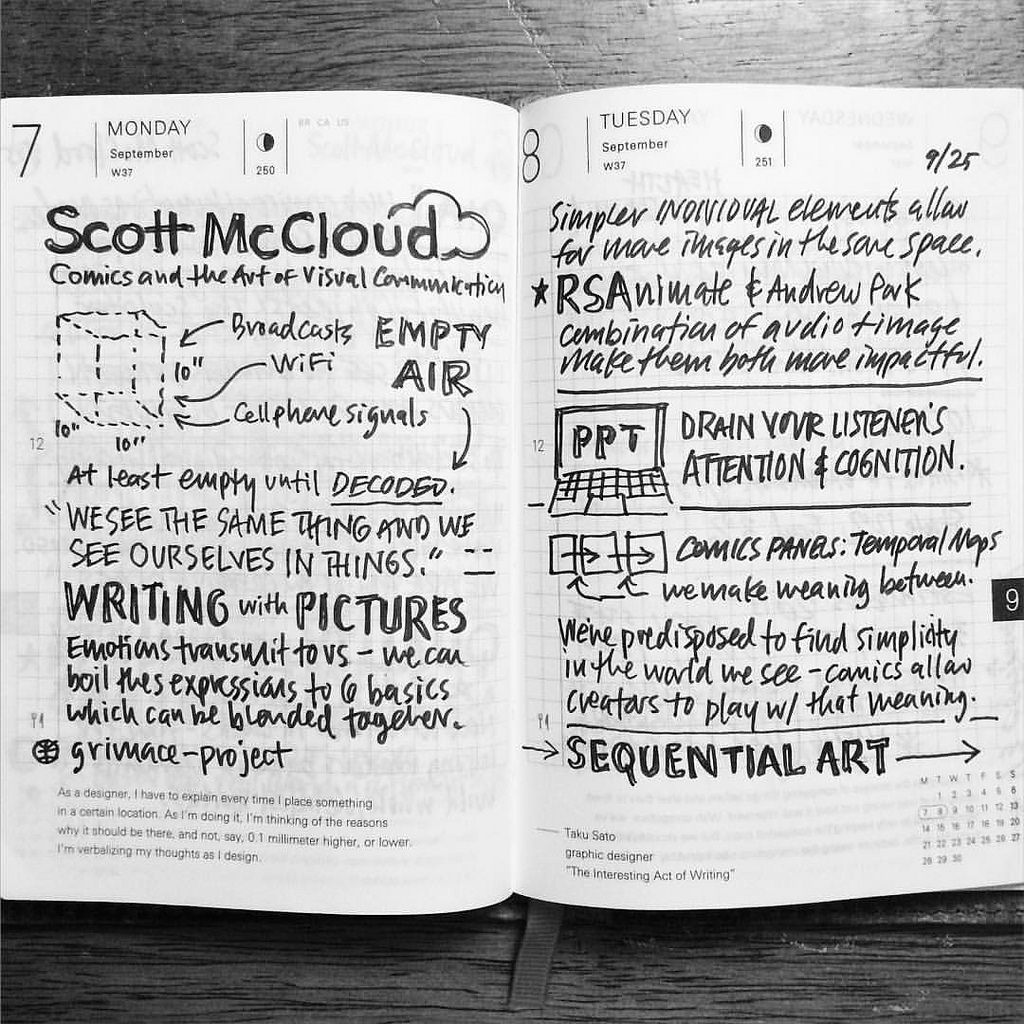 7
MONDAY
September
W37
BR CA US
250
Scott McCloud
Comics and the Art of Visual Communication
Broadcasts EMPTY
10"
WiFi AIR
Cellphone signals
10"
10"
12
At least empty until DECODED.
"WE SEE THE SAME THING AND WE
SEE OURSELVES IN THINGS." --
WRITING with PICTURES
Emotions transmit to us – we can
boil thes expressions to 6 basics
which can be blended together.
grimace-project
As a designer, I have to explain every time I place something
in a certain location. As I'm doing it, I'm thinking of the reasons
why it should be there, and not, say, 0.1 millimeter higher, or lower.
I'm verbalizing my thoughts as I design.
8
TUESDAY
September
W37
251
9/25
Simpler INDIVIDUAL elements allow
for more images in the same space.
★ RSAnimate & Andrew Park
combination of audio + image
make them both more impactful.
12
PPT
DRAIN YOUR LISTENER'S
ATTENTION & COGNITION.
COMICS PANELS: Temporal Maps
we make meaning between.
9
We're predisposed to find simplicity
in the world we see – comics allow
creators to play w/ that meaning.
→ SEQUENTIAL ART →
M T W T F S S
1 2 3 4 5 6
7 8 9 10 11 12 13
14 15 16 17 18 19 20
21 22 23 24 25 26 27
28 29 30
Taku Sato
graphic designer
"The Interesting Act of Writing"